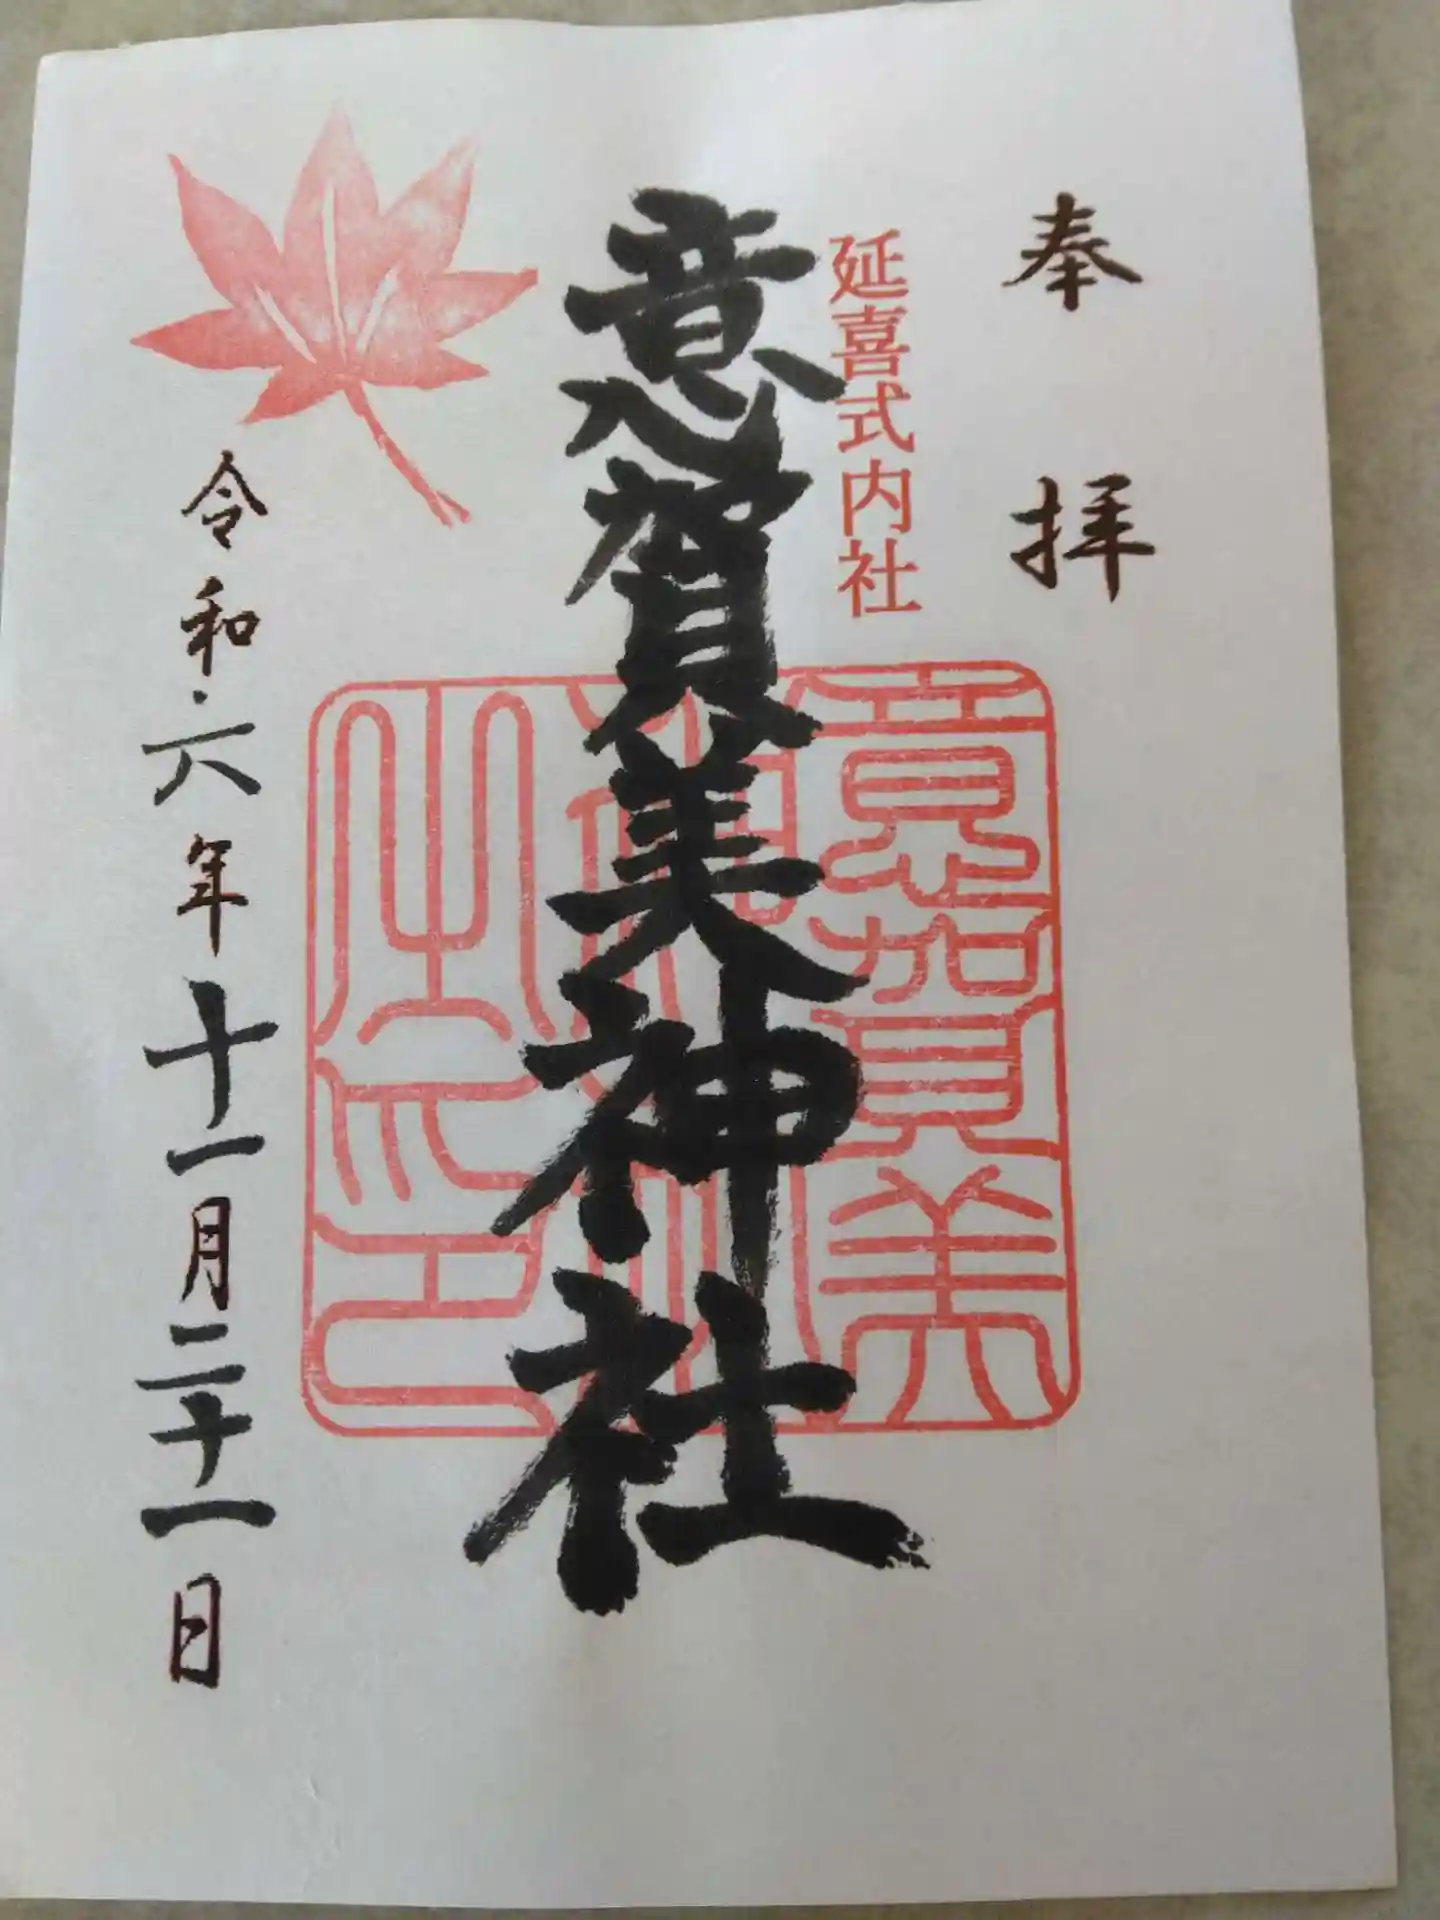 奉拝
延喜式内社
意賀美神社
意賀美神社之印
令和六年十一月二十一日